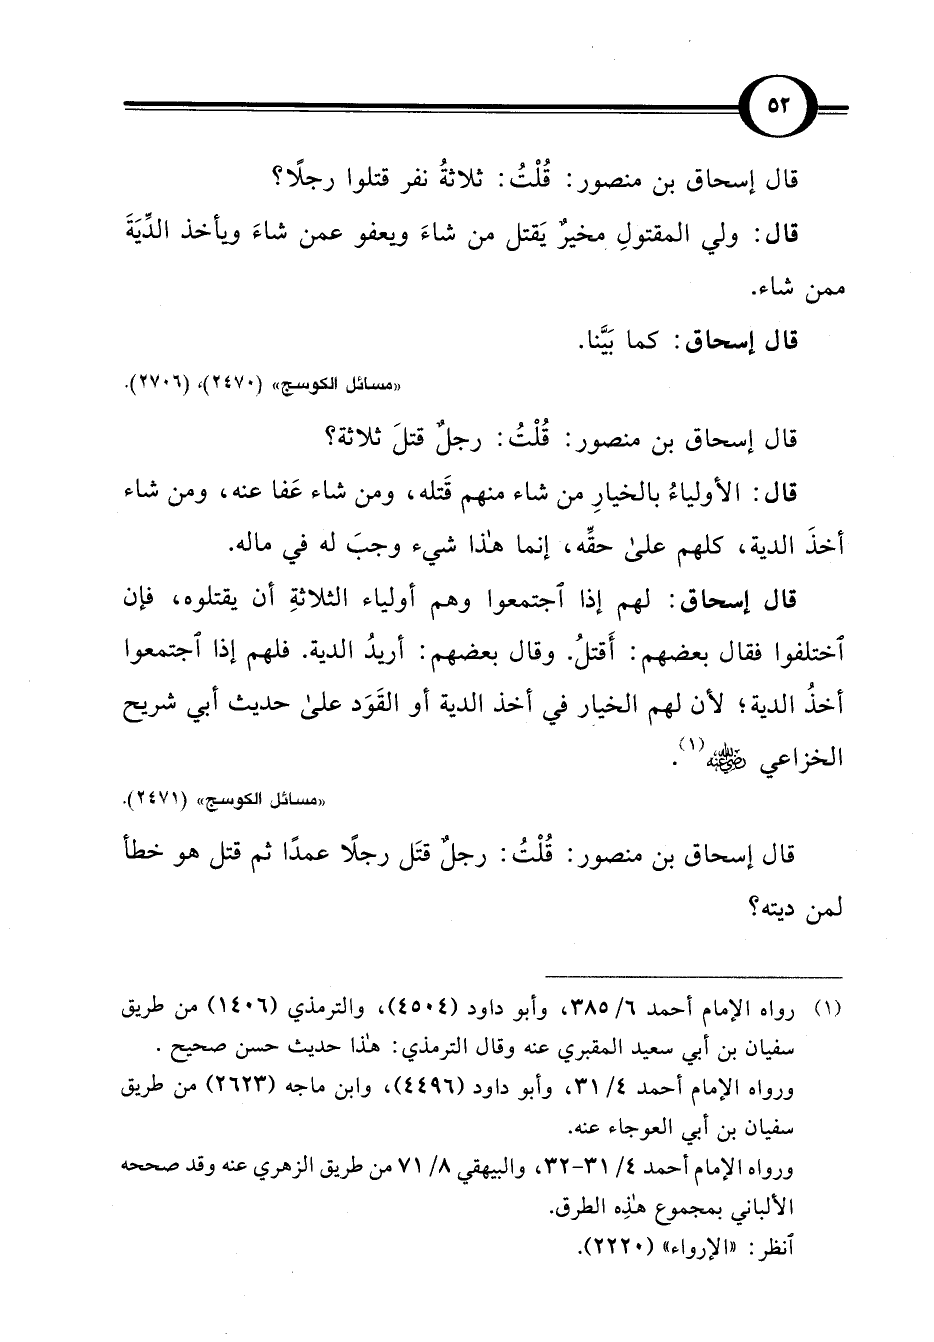 ٥٢
قال إسحاق بن منصور: قُلْتُ: ثلاثةُ نفر قتلوا رجلًا؟
قال: ولي المقتولِ مخيرٌ يَقتل من شاءَ ويعفو عمن شاءَ ويأخذ الدِّيَةَ
ممن شاء.
قال إسحاق: كما بَيَّنا.
«مسائل الكوسج» (٢٤٧٠)، (٢٧٠٦).
قال إسحاق بن منصور: قُلْتُ: رجلٌ قتلَ ثلاثة؟
قال: الأولياءُ بالخيارِ من شاء منهم قَتله، ومن شاء عَفا عنه، ومن شاء
أخذَ الدية، كلهم علىٰ حقِّه، إنما هٰذا شيء وجبَ له في ماله.
قال إسحاق: لهم إذا ٱجتمعوا وهم أولياء الثلاثةِ أن يقتلوه، فإن
ٱختلفوا فقال بعضهم: أَقتلُ. وقال بعضهم: أريدُ الدية. فلهم إذا ٱجتمعوا
أخذُ الدية؛ لأن لهم الخيار في أخذ الدية أو القَوَد علىٰ حديث أبي شريح
الخزاعي رضي الله عنه (١).
«مسائل الكوسج» (٢٤٧١).
قال إسحاق بن منصور: قُلْتُ: رجلٌ قتَل رجلًا عمدًا ثم قتل هو خطأ
لمن ديته؟
(١) رواه الإمام أحمد ٦/ ٣٨٥، وأبو داود (٤٥٠٤)، والترمذي (١٤٠٦) من طريق
سفيان بن أبي سعيد المقبري عنه وقال الترمذي: هٰذا حديث حسن صحيح .
ورواه الإمام أحمد ٤/ ٣١، وأبو داود (٤٤٩٦)، وابن ماجه (٢٦٢٣) من طريق
سفيان بن أبي العوجاء عنه.
ورواه الإمام أحمد ٤/ ٣١-٣٢، والبيهقي ٨/ ٧١ من طريق الزهري عنه وقد صححه
الألباني بمجموع هٰذِه الطرق.
ٱنظر: «الإرواء» (٢٢٢٠).